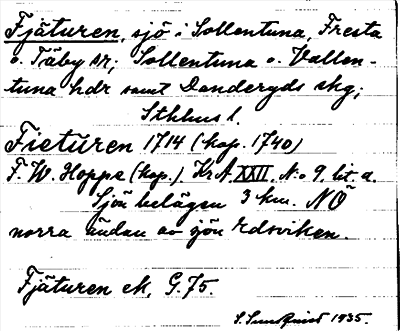 Fjäturen, sjö i Sollentuna, Fresta
o. Täby sr; Sollentuna o. Vallen-
tuna hdr samt Danderyds skg;
Sthlms l.
Fieturen 1714 (kop. 1740)
F. W. Hoppe (kop.). Kr.A. XXII. N:o 9. lit. a.
Sjön belägen 3 km. NÖ
norra ändan av sjön Edsviken.
Fjäturen ek. G.75.
S. Sundquist 1935.